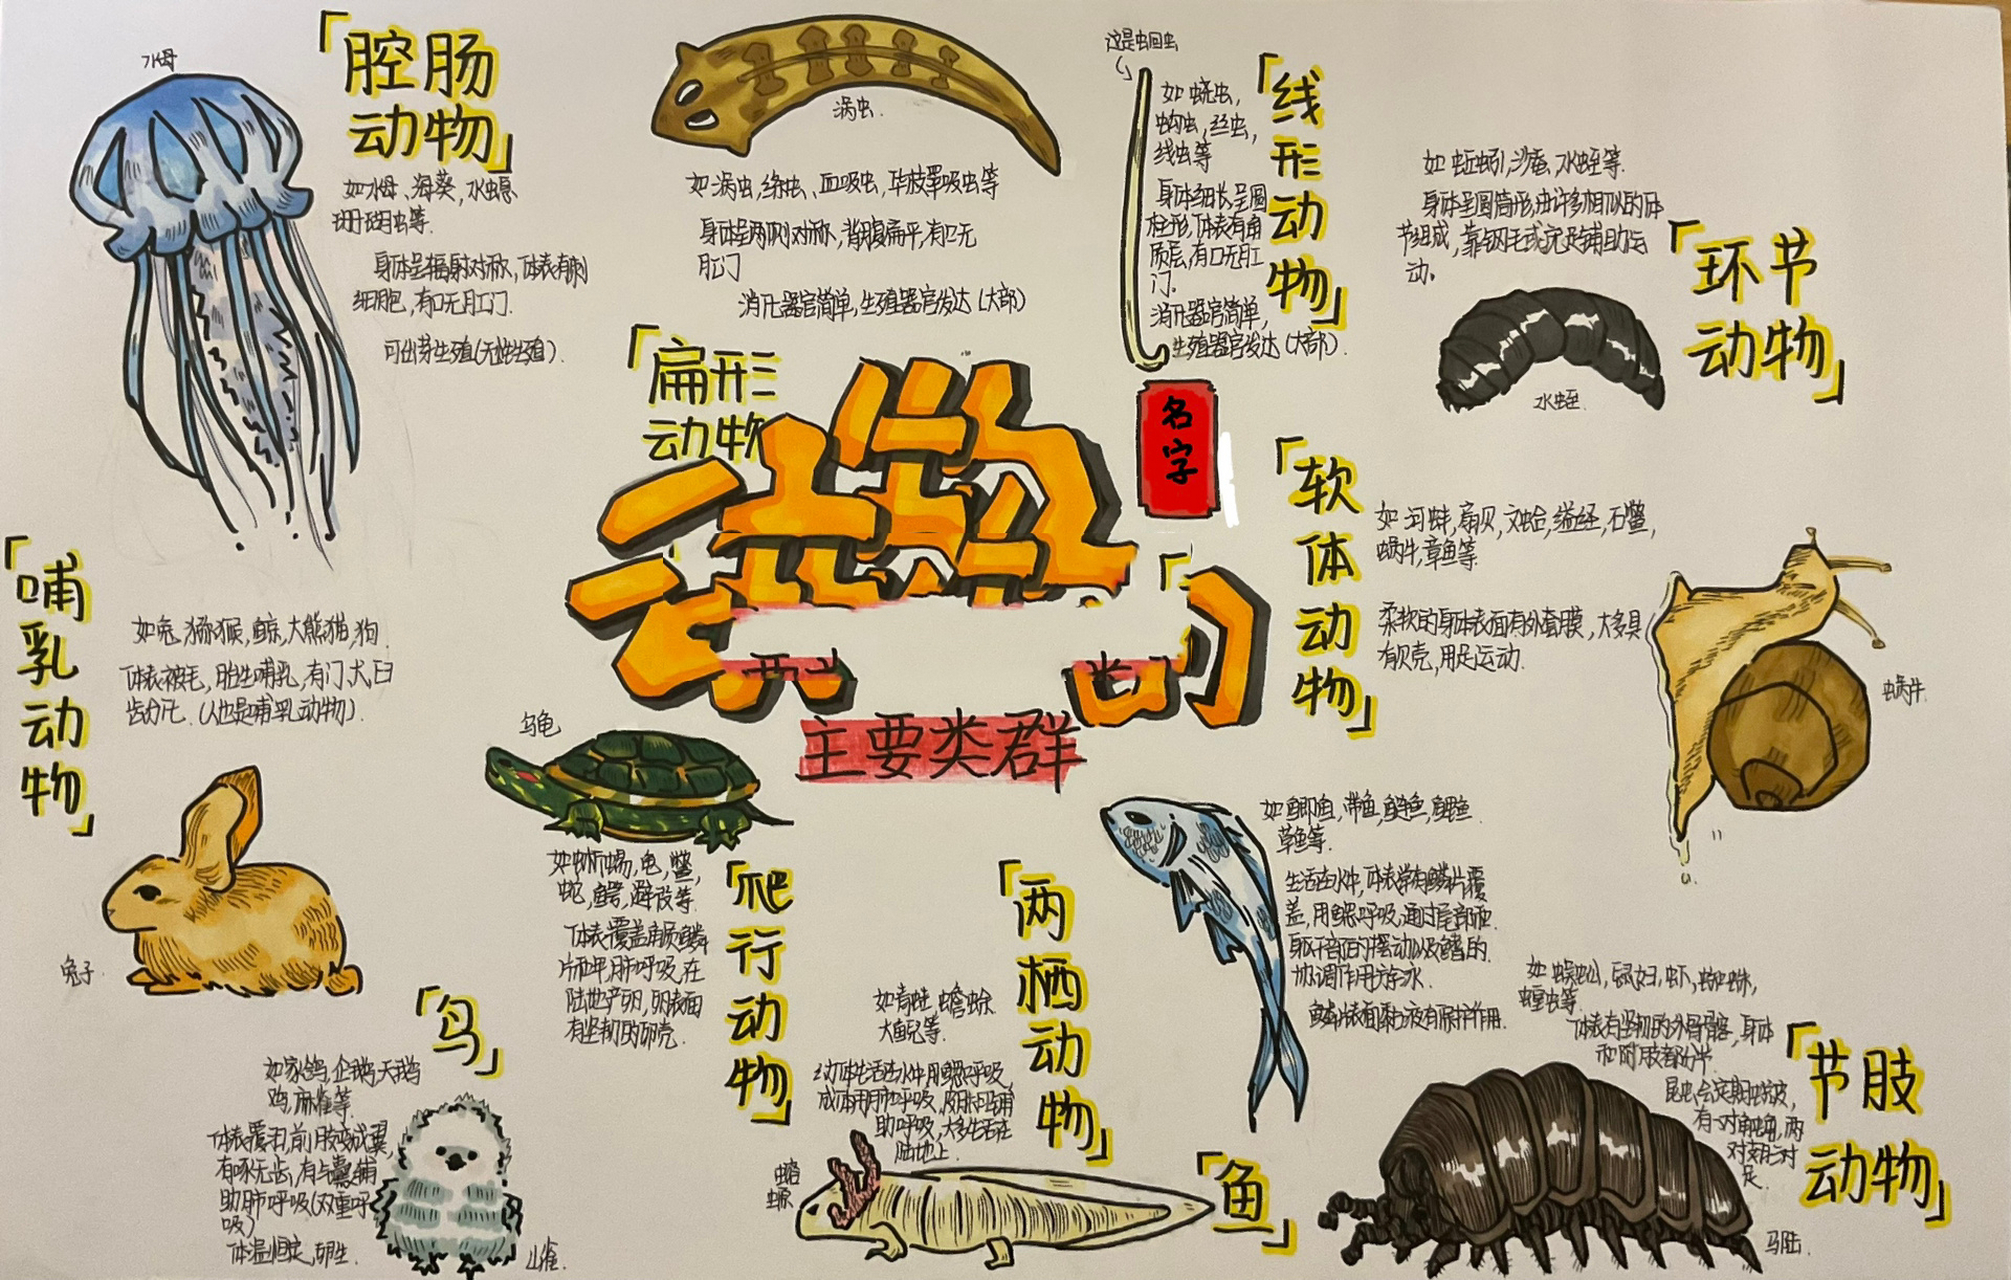 水母
「腔肠
动物」
如水母、海葵,水螅、
珊瑚虫等.
身体呈辐射对称,体表有刺
细胞,有口无肛门.
可出芽生殖(无性生殖).
涡虫.
如涡虫,绦虫、血吸虫,华枝睾吸虫等
身体呈两侧对称,背腹扁平,有口无
肛门
消化器官简单,生殖器官发达(大部)
「扁形
动物
这是蛔虫
如蛲虫,
蚼虫,丝虫,
线虫等
身体细长,呈圆
柱形,体表有角
质层,有口无肛
门。
消化器官简单,
生殖器官发达(大部).
「线形动物」
如蚯蚓,沙蚕,水蛭等.
身体呈圆筒形,由许多相似的体
节组成,靠刚毛或疣足辅助运
动。
「环节
动物」
水蛭.
名字
「软体动物」
如河蚌,扇贝,文蛤,缢蛏,石鳖,
蜗牛,章鱼等.
柔软的身体表面有外套膜,大多具
有贝壳,用足运动.
蜗牛.
动物
的
主要类群
「哺乳动物」
如兔,猕猴,鲸,大熊猫,狗.
体表被毛,胎生哺乳,有门,犬,臼
齿分化.(人也是哺乳动物).
兔子.
乌龟
如蜥蜴,龟,鳖,
蛇,鳄,避役等.
体表覆盖角质鳞
片或甲,用肺呼吸,在
陆地产卵,卵表面
有坚韧的卵壳.
「爬行动物」
「鸟」
如家鸽,企鹅,天鹅
鸡,麻雀等.
体表覆羽,前肢变成翼,
有喙无齿,有气囊辅
助肺呼吸(双重呼
吸)
体温恒定,卵生.
山雀.
「两栖动物」
如青蛙,蟾蜍
大鲵等.
幼体生活在水中,用鳃呼吸,
成体用肺呼吸,皮肤可辅
助呼吸,大多生活在
陆地上.
蝾螈
「鱼」
如鲫鱼,带鱼,鲢鱼,鲤鱼
草鱼等.
生活在水中,体表常有鳞片覆
盖,用鳃呼吸,通过尾部和
躯干部的摆动以及鳍的
协调作用游泳.
鳞片表面黏液有保护作用.
如蜈蚣,鼠妇,虾,蜘蛛,
蝗虫等.
体表有坚韧的外骨骼,身体
和附肢都分节.
昆虫会定期蜕皮,
有一对触角,两
对翅,三对
足.
「节肢
动物」
马陆.